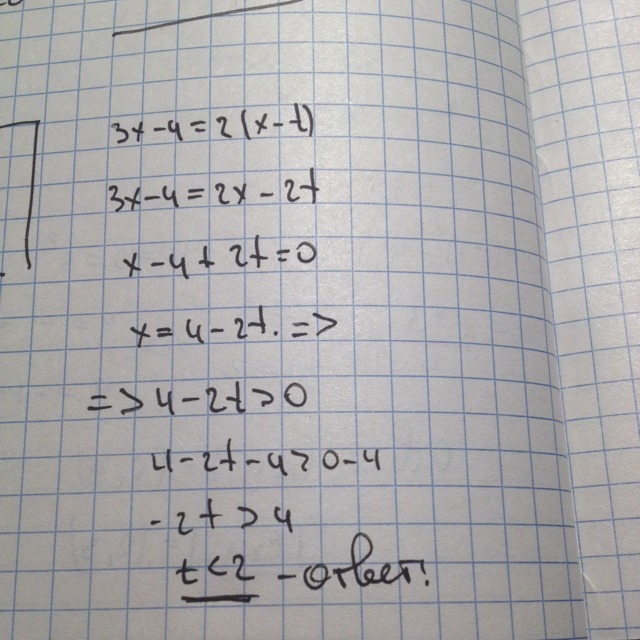 3x-4=2(x-t)
3x-4=2x-2t
x-4+2t=0
x=4-2t. =>
=> 4-2t>0
4-2t-4>0-4
-2t>4
t<2 - ответ!